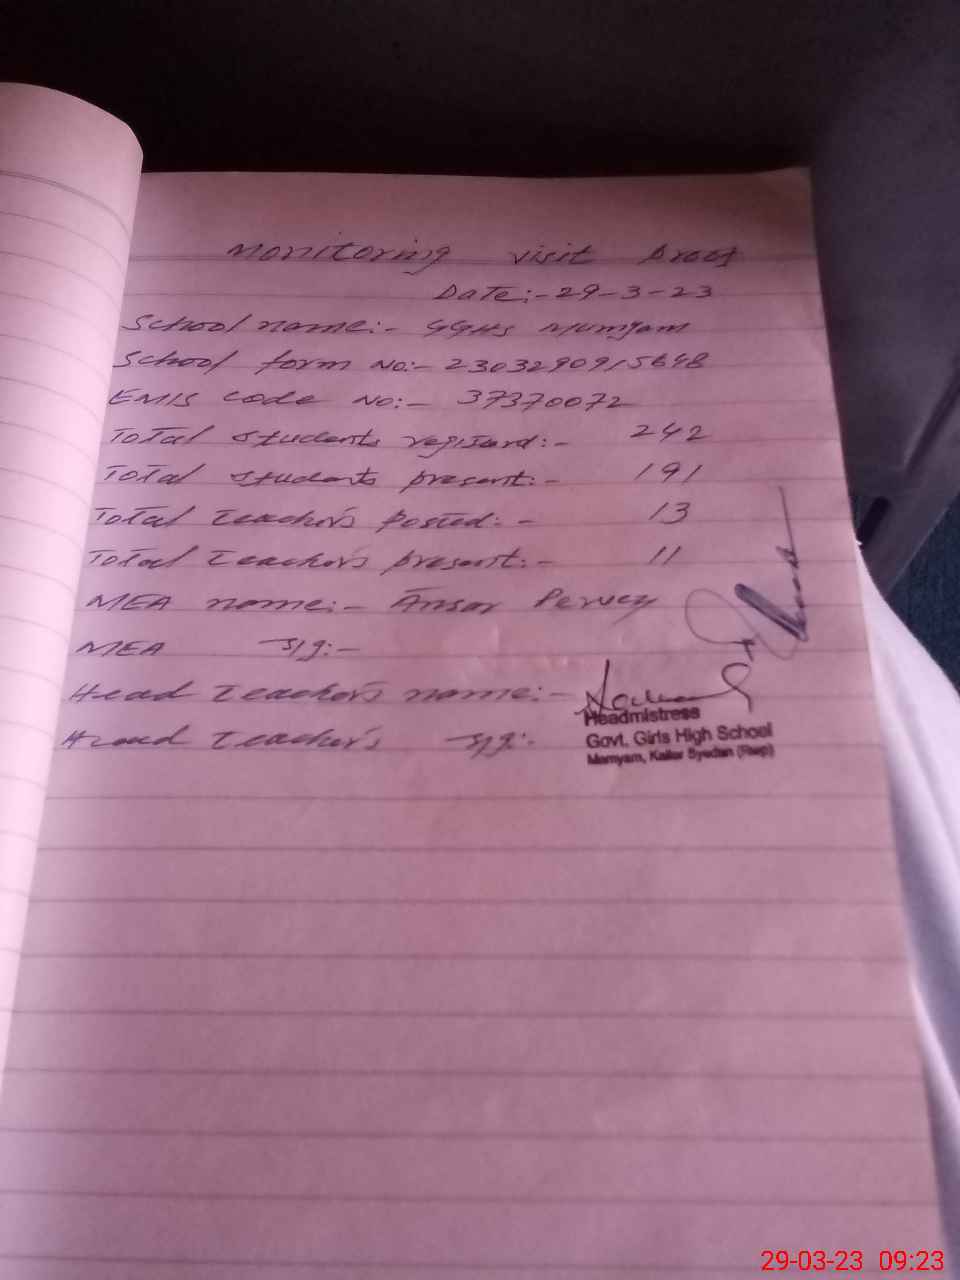 Monitoring visit Proof
Date:- 29-3-23
School name:- GGHS Mumyam
School form No:- 2303290915648
EMIS code No:- 37370072
Total students registerd:- 242
Total students present:- 191
Total Teacher's Posted:- 13
Total Teacher's present:- 11
MEA name:- Ansar Pervez
MEA Sig:-
Head Teacher's name:-
Headmistress
Head Teacher's Sig:-
Govt. Girls High School
Mamyam, Kallar Syedan (Rwp)
29-03-23 09:23